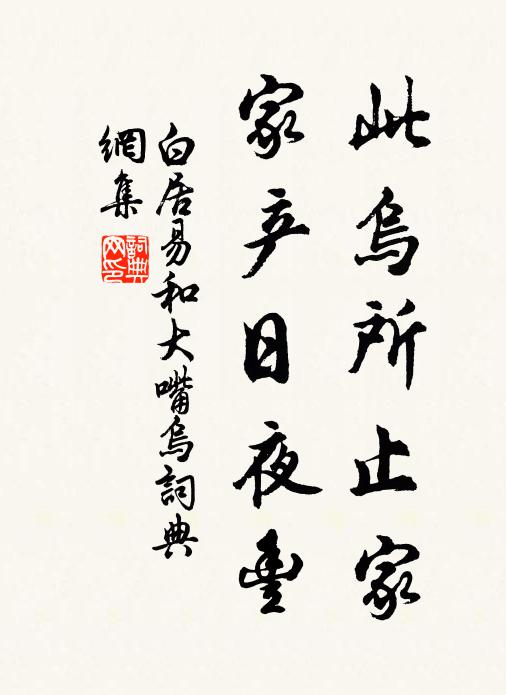 此烏所止家
家产日夜豐
白居易和大嘴烏詞典
網集
詞典网印